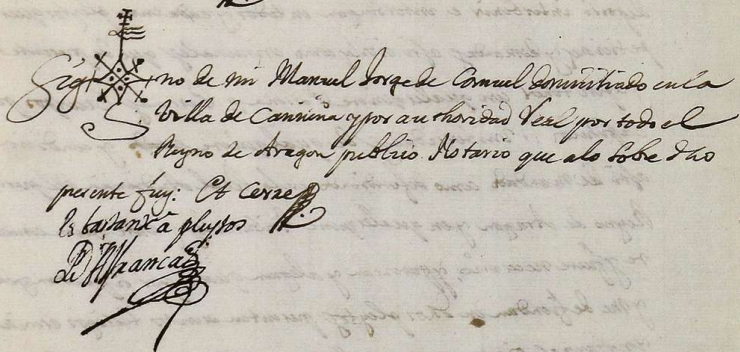 Sig no de mi Manuel Jorge de Comuel domiciliado en la
Villa de Cariñena y por authoridad Real por todo el
Reyno de Aragon publico Notario que a lo sobre dho
presente fuy: Et Cerre
Es bastante a pleytos